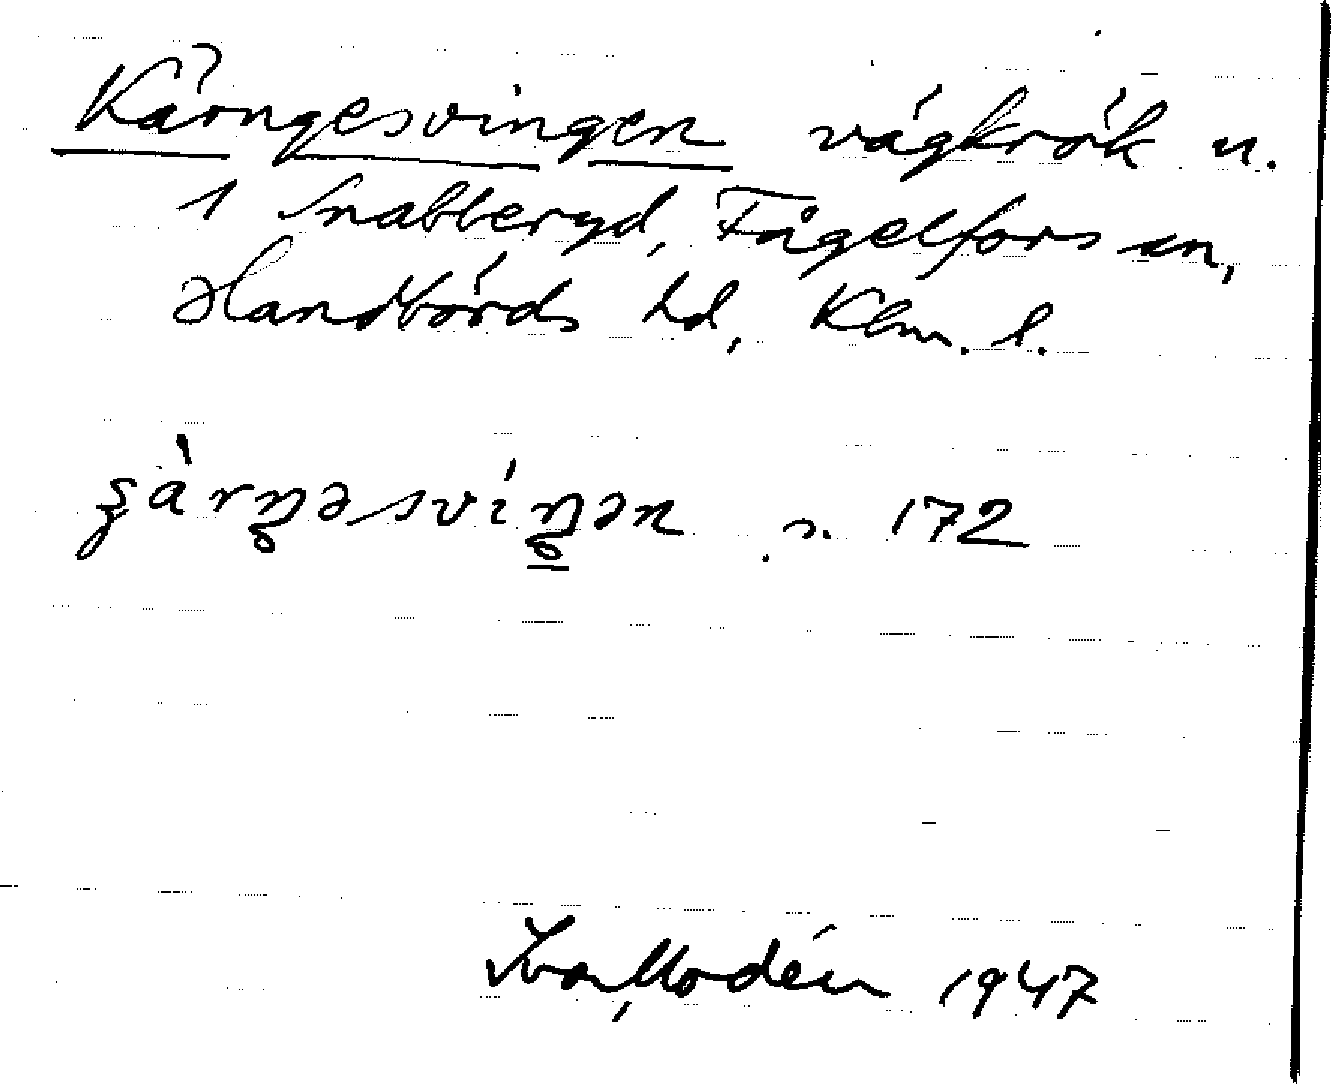 Kärngesvingen vägkrök n.
1 Snabberyd, Fågelfors sn,
Handbörds hd, Klm. l.
s. 172
Ivar Modéer 1947